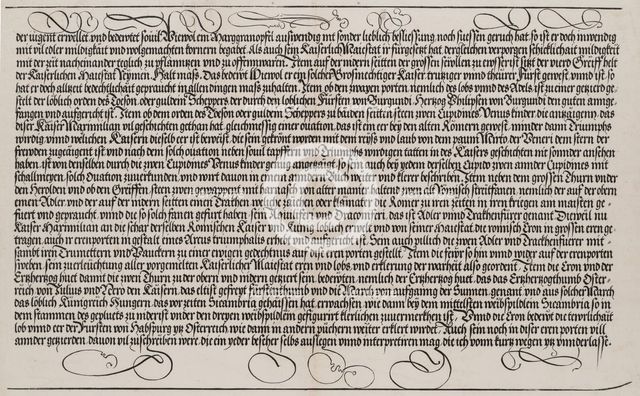 der tugent erwöllet vnd bedewtet souil Wiewol ein Marggranopffl auswendig nit sonder lieblich besliessung noch suessen geruch hat so ist er doch inwendig
mit vil edler mildigkeit vnd wolgemachten kornern begabet Als auch sein Kaiserlich Maiestat ir fürgesetzt hat dergleichen verporgen schicklichait mildigkeit
mit der zeit nacheinander teglich zu pflantzen vnd zu offinwaren Item auf der nidern seitten der grossen sewllen zu ewsserist sitzt der vierd Greiff helt
der Kaiserlichen Maiestat Reymen Halt mass Das bedewt Wiewol er ein solcher Grosmechtiger Kaiser trutziger vnnd thewrer Fürst gewest vnnd ist so
hat er doch allzeit bedechtlichait gepraucht in allen dingen mass zuhalten Item ob den zwayen porten nemlich des lobs vnnd des Adels ist zu einer getzierd ge-
stelt der löblich orden des Toeson oder gulden Scheppers der durch den loblichen Fürsten von Burgundi Hertzog Philipsen von Burgundi den guten annge-
fangen vnd aufgericht ist Item ob dem orden des Toeson oder gulden Scheppers zu baiden seitten steen zwen Cupidines Venus kinder die antzaigenn das
diser Kaiser Maximilian vil geschichten gethan hat gleichmessig einer ouation das ist ein eer bey den alten Römern gewest minder dann Triumphs
wirdig vnnd welichen Kaisern dieselb eer ist beweist die sein gekrönt worden mit dem reyss vnd laub von dem paum Mirto der Veneri dem stern der
frewden zugeaigent ist vnd nach dem solch ouation neben souil tapffern vnd Triumphs wirdigen tatten des Kaisers geschichten nit sonder antzaigen
haben ist von denselben durch die zwen Cupidines Venus kinder genug angetzaigt so sein auch bey yeden derselben Cupido zwen annder Cupidines mit
schallmeyen solch Ouation zuuerkunden vnd wirt dauon in einem anndern Buch weiter vnd klerer beschriben Item neben dem grossen Thurn vnder
den Herolden vnd ob den Greiffen steen zwen gewappent mit harnasch der alten manier haltend zwen alt Romisch streitfanen nemlich der auf der obern
einen Adler vnd der auf der nidern seitten einen Trakhen welliche zaichen oder kleinater die Römer zu iren zeiten in iren kriegen am maisten ge-
fuert vnd gepraucht vnnd die so solch fanen gefürt haben sein Aquiliferi vnd Draconiferi das ist Adler vnnd Trakhenfürer genant Dieweil nu
Kaiser Maximilian an die schar derselben Römischen Kaiser vnd Kunig löblich erwelt vnd von seiner Maiestat die romisch Cron in grossen eren ge-
tragen auch ir erenporten in gestalt eines Arcus triumphalis erhebt vnd aufgericht ist Sein auch pillich die zwen Adler vnd Trackhenfuerer mit-
sambt iren Trumettern vnd Pauckern zu einer ewigen gedechtnus auf dise eren porten gestellt Item die fewr so hin vnnd wider auf der erenporten
sweben sein zuerleuchtung aller vorgemelten Kaiserlicher Maiestat eren vnd lobs vnd erklerung der warhait also geordent Item die Cron vnd der
Ertzhertzog huet damit die zwen Thurn zu der obern vnd nidern getziert sein bedewten nemlich der Ertzhertzog huet das das Ertzhertzogthumb Oster-
reich von Julius vnd Nero den Kaisern das erst gefreyt Fürstenthumb vnd die March vor aufganng der Sunnen genant vnd aus solcher March
das löblich Kunigreich Hungern das vorzeiten Sicambria gehaissen hat erwachsen wie dann bey dem mittelsten weibspilden Sicambria so in
dem stammen des gepluets zu niderst vnder den dreyen weibspilden gefigurirt klerlichen zuuermerkhen ist Vnnd die Cron bedewt die teurlichait
lob vnnd eer der Fürsten von Habspurg ytz Osterreich wie dann in andern püchern weiter erklert wirdet Auch sein noch in diser eren porten vill
annder getzierden dauon vil zuschreiben were die ein yeder bescheer selbs auslegen vnnd interpretiren mag die ich vonn kurtz wegen ytz vnnderlasse